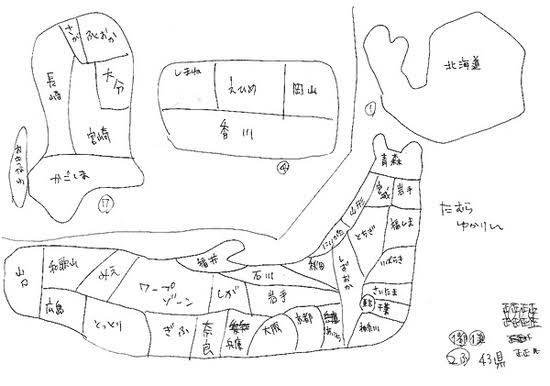 さが
ふくおか
長崎
大分
宮崎
かごしま
おきなわ
⑰
しまね
えひめ
岡山
香川
④
北海道
①
青森
山形
宮城
岩手
にいがた
とちぎ
福しま
秋田
しずおか
いばらき
さいたま
東京
千葉
神奈川
山口
和歌山
みえ
ワープ
ゾーン
福井
石川
しが
岩手
広島
とっとり
ぎふ
奈良
兵庫
大阪
京都
たむら
ゆかりん
正正正正
正正正正
正正
①都 ①道
②ふ 43県